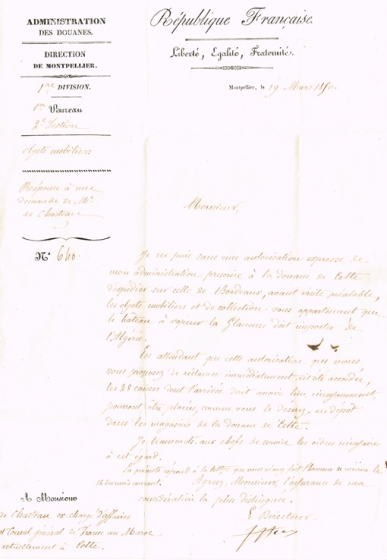 ADMINISTRATION
DES DOUANES.
DIRECTION
DE MONTPELLIER.
1re DIVISION.
1er Bureau
2e Section
objets mobiliers
Réponse à une
demande de Mr
de Chasteau
No 640
République Française.
Liberté, Egalité, Fraternité.
Montpellier, le 19 Mars 1850
Monsieur,
Je ne puis sans une autorisation expresse de
mon administration, permettre à la douane de Cette
d'expédier sur celle de Bordeaux, avant visite préalable,
les objets mobiliers et de collection vous appartenant que
le bateau à vapeur doit importer de
l'Algérie.
En attendant que cette autorisation, que vous
vous proposez de réclamer immédiatement, ait été accordée,
les 28 caisses dont l'arrivée doit avoir lieu
pourront être, comme vous le désirez, en dépôt
dans les magasins de la douane de Cette.
Je transmets aux chefs de service les ordres nécessaires
à cet égard.
La présente répond à la lettre que vous m'avez fait l'honneur de m'écrire le
18 du mois courant. Agréez, Monsieur, l'assurance de ma
considération la plus distinguée.
Le Directeur
A Monsieur
de Chasteau ex chargé d'affaires
et Consul général de France au Maroc
actuellement à Cette.